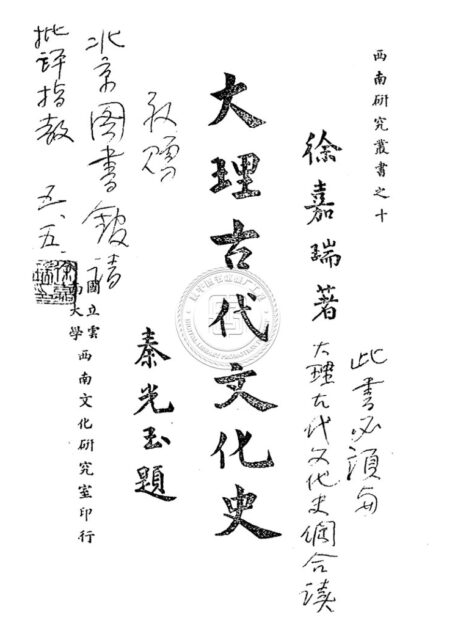 西南研究叢書之十
徐嘉瑞著
此書必須与
大理古代文化史綱合读
大理古代文化史
秦光玉題
敬赠
北京图書館请
批评指教 五.五.
國立雲南大學西南文化研究室印行